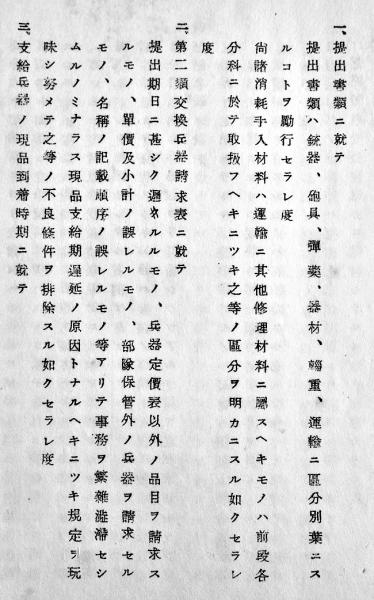 一、提出書類ニ就テ
提出書類ハ銃器、砲具、彈藥、器材、輜重、運輸ニ區分別葉ニス
ルコトヲ勵行セラレ度
尙諸消耗手入材料ハ運輸ニ其他修理材料ニ屬スヘキモノハ前段各
分科ニ於テ取扱フヘキニツキ之等ノ區分ヲ明カニスル如クセラレ
度
二、第二類交換兵器請求表ニ就テ
提出期日ニ甚シク遲ルルモノ、兵器定價表以外ノ品目ヲ請求ス
ルモノ、單價及小計ノ誤レルモノ、部隊保管外ノ兵器ヲ請求セル
モノ、名稱ノ記載順序ノ誤レルモノ等アリテ事務ヲ繁雜澁滯セシ
ムルノミナラス現品支給期遲延ノ原因トナルヘキニツキ規定ヲ玩
味シ努メテ之等ノ不良條件ヲ排除スル如クセラレ度
三、支給兵器ノ現品到着時期ニ就テ